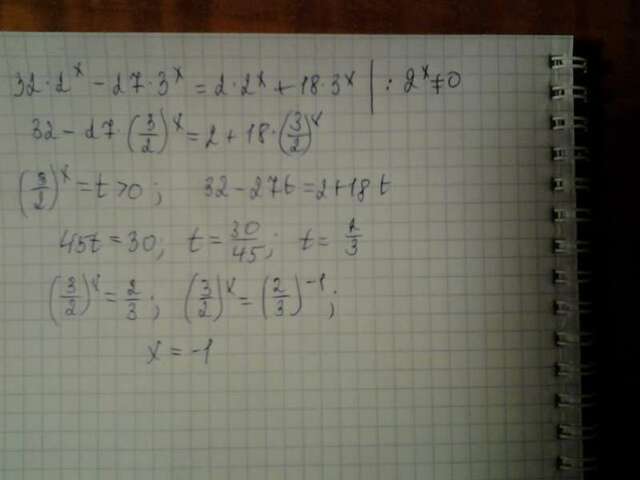 32·2^x − 27·3^x = 2·2^x + 18·3^x | : 2^x ≠ 0
32 − 27·(3/2)^x = 2 + 18·(3/2)^x
(3/2)^x = t > 0; 32 − 27t = 2 + 18t
45t = 30, t = 30/45; t = 2/3
(3/2)^x = 2/3; (3/2)^x = (2/3)^−1;
x = −1